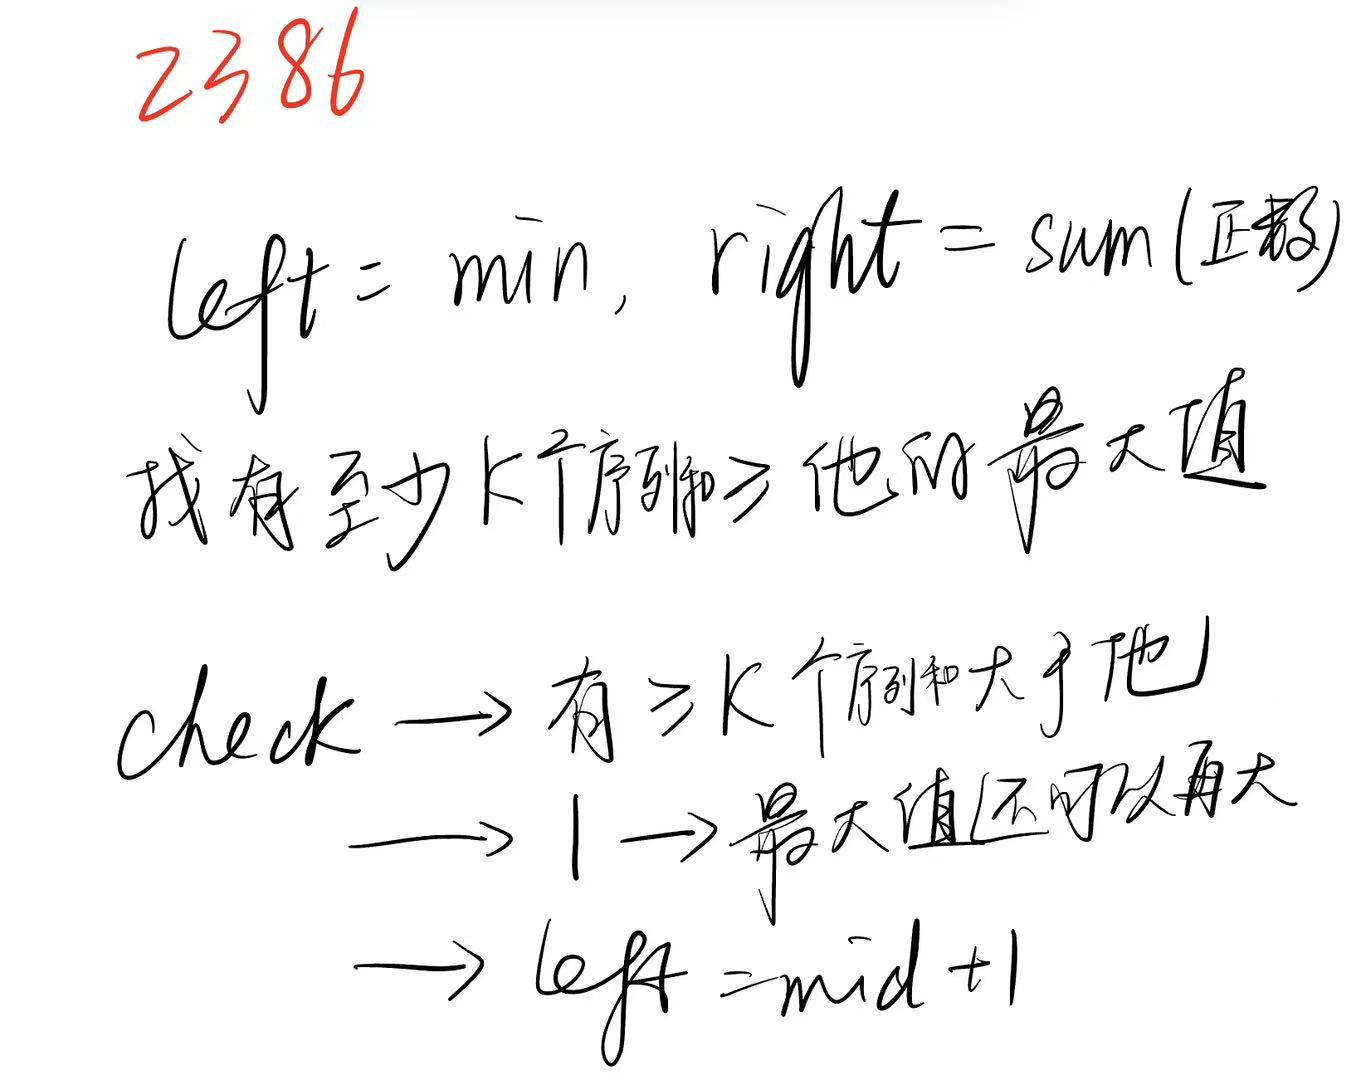 2386
left = min, right = sum(正数)
找有至少K个序列和≥他的最大值
check → 有≥K个序列和大于他
→ 1 → 最大值还可以再大
→ left = mid + 1